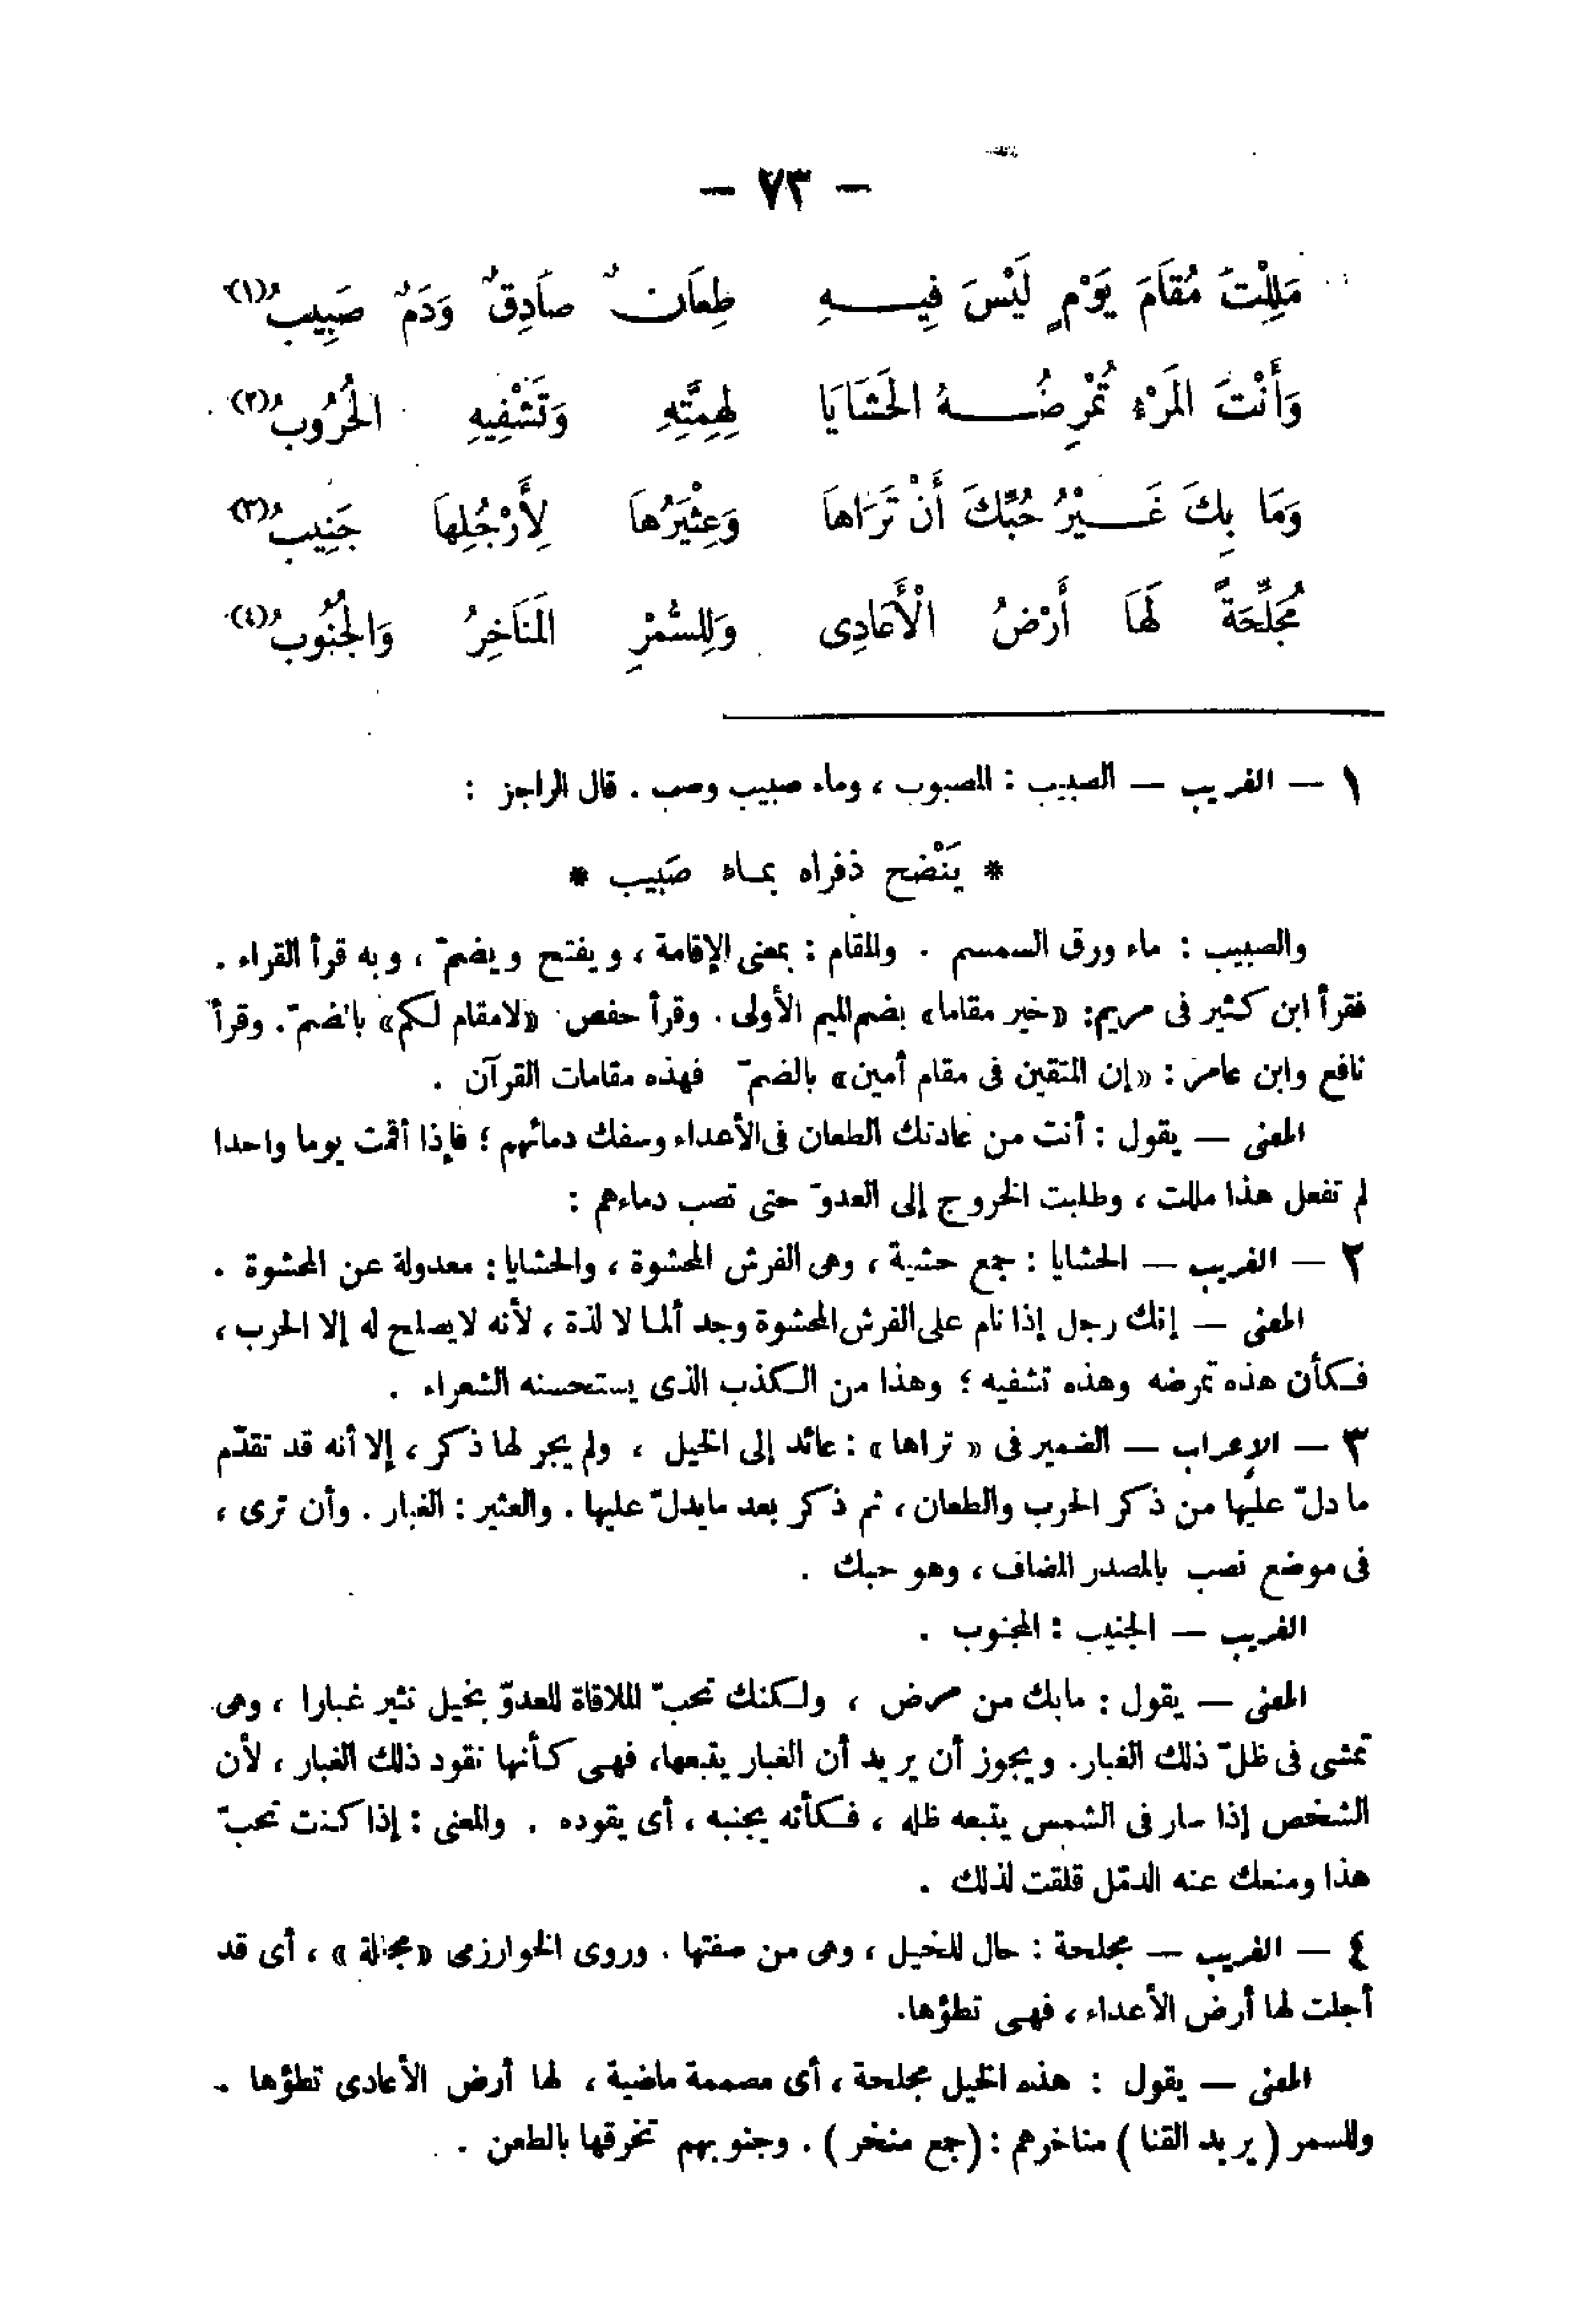 — ٧٣ —
مَلِلْتَ مُقَامَ يَوْمٍ لَيْسَ فِيهِ طِعَانٌ صَادِقٌ وَدَمٌ صَبِيبُ(١)
وَأَنْتَ المَرْءُ تُمْرِضُهُ الحَشَايَا لِهِمَّتِهِ وَتَشْفِيهِ الحُرُوبُ(٢)
وَمَا بِكَ غَيْرُ حُبِّكَ أَنْ تَرَاهَا وَعِثْيَرُهَا لِأَرْجُلِهَا جَنِيبُ(٣)
مُجَلِّحَةً لَهَا أَرْضُ الْأَعَادِى وَلِلسُّمْرِ المَنَاخِرُ وَالجُنُوبُ(٤)
١ — الغريب — الصبيب : المصبوب ، وماء صبيب وصب . قال الراجز :
* يَنْضح ذفراه بماء صَبيب *
والصبيب : ماء ورق السمسم . والمقام : بمعنى الإقامة ، ويفتح ويضمّ ، وبه قرأ القراء .
فقرأ ابن كثير فى مريم: «خير مقاما» بضم الميم الأولى . وقرأ حفص «لامقام لكم» بالضمّ. وقرأ
نافع وابن عامر : «إن المتقين فى مقام أمين» بالضمّ فهذه مقامات القرآن .
المعنى — يقول : أنت من عادتك الطعان فى الأعداء وسفك دمائهم ؛ فإذا أقمت يوما واحدا
لم تفعل هذا مللت ، وطلبت الخروج إلى العدوّ حتى تصب دماءهم :
٢ — الغريب — الحشايا : جمع حشية ، وهى الفرش المحشوة ، والحشايا : معدولة عن المحشوة .
المعنى — إنك رجل إذا نام على الفرش المحشوة وجد ألما لا لذة ، لأنه لايصلح له إلا الحرب ،
فكأن هذه تمرضه وهذه تشفيه ؛ وهذا من الكذب الذى يستحسنه الشعراء .
٣ — الإعراب — الضمير فى « تراها » : عائد إلى الخيل ، ولم يجر لها ذكر ، إلا أنه قد تقدّم
ما دلّ عليها من ذكر الحرب والطعان ، ثم ذكر بعد مايدلّ عليها . والعثير : الغبار . وأن ترى ،
فى موضع نصب بالمصدر المضاف ، وهو حبك .
الغريب — الجنيب : المجنوب .
المعنى — يقول : مابك من مرض ، ولكنك تحبّ الملاقاة للعدوّ بخيل تثير غبارا ، وهى
تمشى فى ظلّ ذلك الغبار. ويجوز أن يريد أن الغبار يتبعها، فهى كأنها تقود ذلك الغبار ، لأن
الشخص إذا سار فى الشمس يتبعه ظله ، فكأنه يجنبه ، أى يقوده . والمعنى : إذا كنت تحبّ
هذا ومنعك عنه الدمّل قلقت لذلك .
٤ — الغريب — مجلحة : حال للخيل ، وهى من صفتها . وروى الخوارزمى «مجللة» ، أى قد
أجلت لها أرض الأعداء ، فهى تطؤها.
المعنى — يقول : هذه الخيل مجلحة ، أى مصممة ماضية ، لها أرض الأعادى تطؤها .
وللسمر ( يريد القنا ) مناخرهم : (جمع منخر ) . وجنوبهم تخرقها بالطعن .